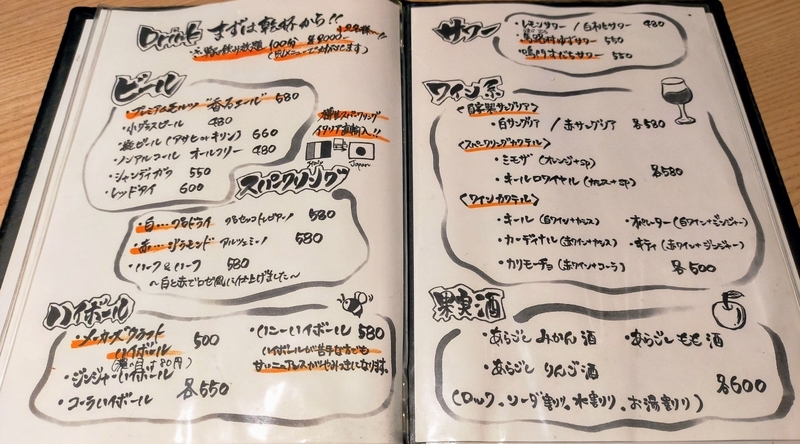 Drink まずは乾杯から!!
飲み放題 100分 ¥2000〜
(別メニューで対応します)
ビール
プレミアムモルツ"香るエール" 580
・小グラスビール 480
・瓶ビール(アサヒorキリン) 660
・ノンアルコール オールフリー 480
・シャンディガフ 550
・レッドアイ 600
樽生スパークリング
イタリア直輸入!!
Italia Japan
スパークリング
・白… プロセッコ 580
・赤… 580
・ハーフ&ハーフ 580
〜白と赤でロゼ風に仕上げました〜
ハイボール
・メーカーズクラフト
ハイボール 500
・ジンジャーハイボール
・コーラハイボール 各550
・ハニーハイボール 580
ハイボールが苦手な方でも
甘いニュアンスがやみつきになります。
サワー
・レモンサワー 480
・馬路村ゆずサワー 550
・鳴門すだちサワー 550
ワイン系
<自家製サングリア>
・白サングリア / 赤サングリア 各580
<スパークリングカクテル>
・ミモザ (オレンジ+sp)
・キールロワイヤル (カシス+sp) 各580
<ワインカクテル>
・キール (白ワイン+カシス) ・オペレーター (白ワイン+ジンジャー)
・カーディナル (赤ワイン+カシス) ・キティ (赤ワイン+ジンジャー)
・カリモーチョ (赤ワイン+コーラ) 各500
果実酒
・あらごし みかん酒 ・あらごし もも酒
・あらごし りんご酒
各600
(ロック、ソーダ割り、水割り、お湯割り)